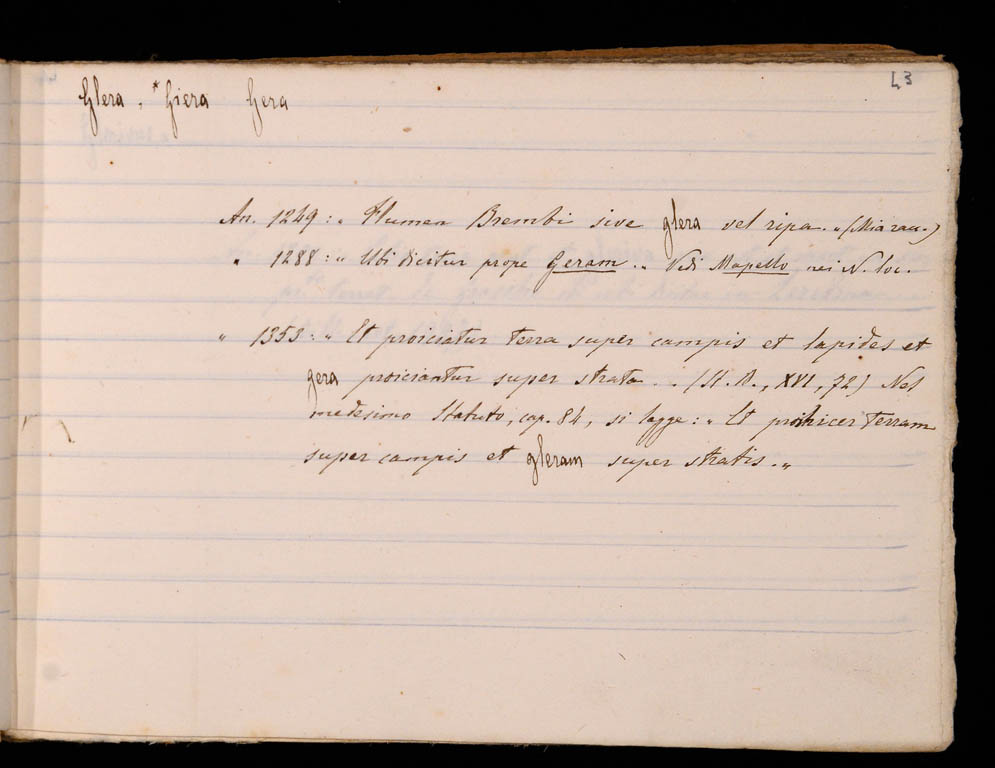 43
Glera, *Giera Gera
An. 1249: „ Flumen Brembi sive glera vel ripa. „ (Mia rau.)
„ 1288: „ Ubi dicitur prope Geram. „ Vedi Mapello nei N. loc.
„ 1353: „ Et proiciatur terra super campis et lapides et
gera proiciantur super strata. „ (St. B., XVI, 72) Nel
medesimo Statuto, cap. 84, si legge: „ Et terram
super campis et gleram super stratis. „